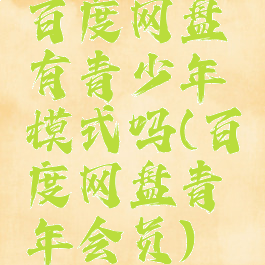 百度网盘
有青少年
模式吗(百
度网盘青
年会员)